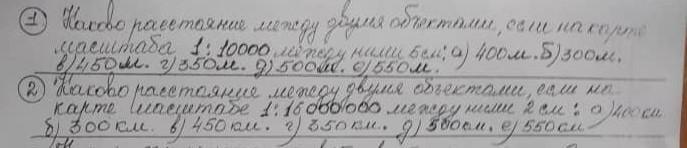 ① Каково расстояние между двумя объектами, если на карте
масштаба 1:10000 между ними 5см: а) 400м. б) 300м.
в) 450м. г) 350м. д) 500м. е) 550м.
② Каково расстояние между двумя объектами, если на
карте масштабе 1:15000000 между ними 2 см: а) 400км
б) 300км. в) 450км. г) 350км. д) 500км. е) 550км